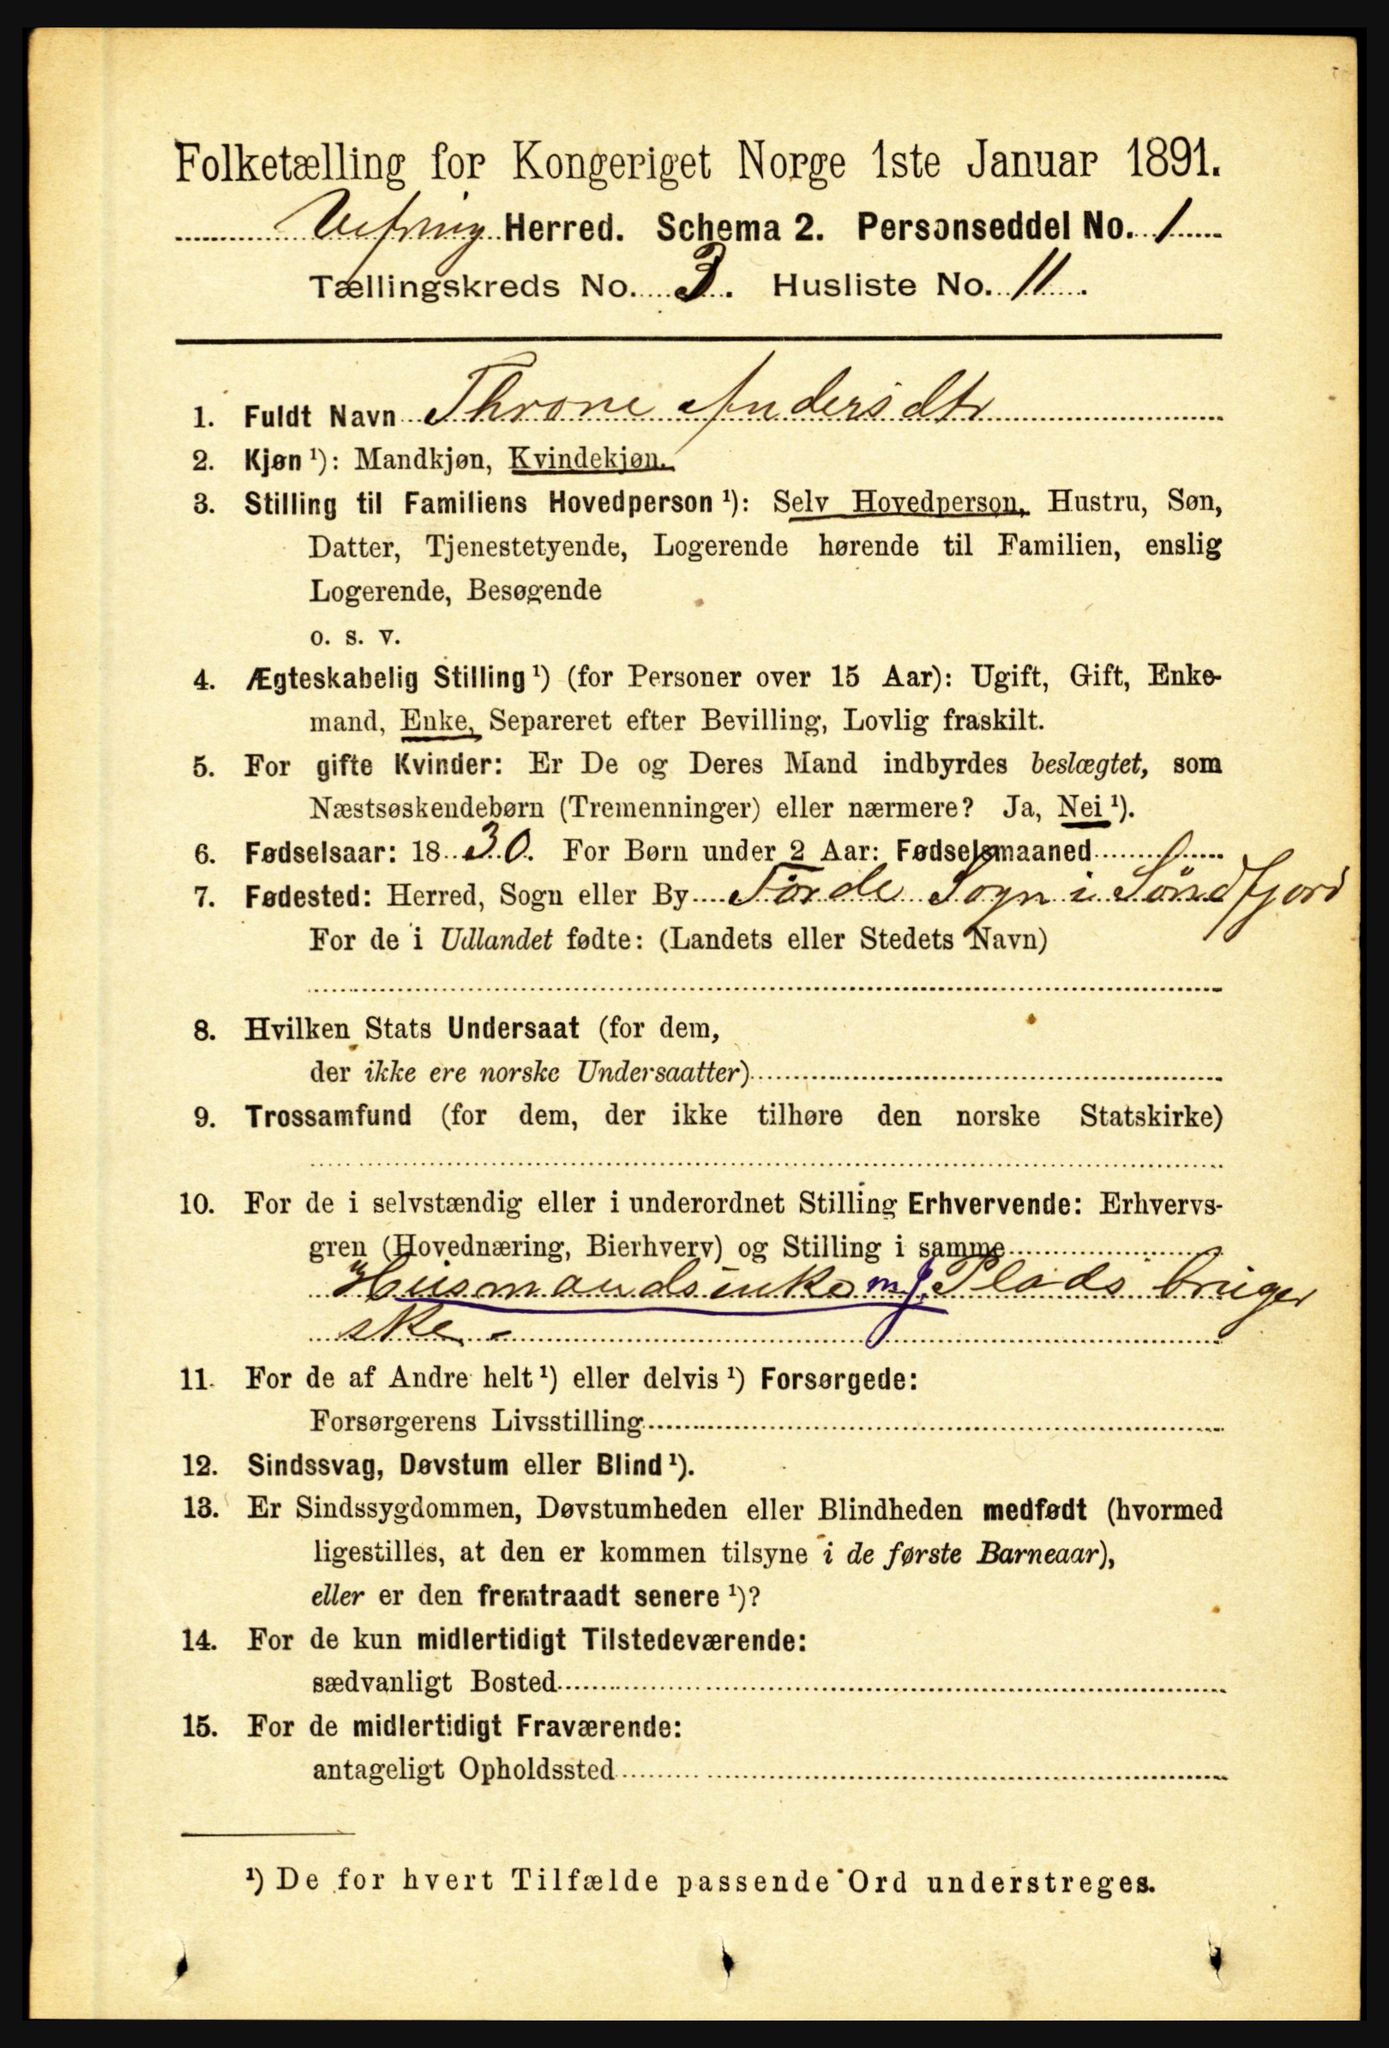 Folketælling for Kongeriget Norge 1ste Januar 1891.
Vefring Herred. Schema 2. Personseddel No. 1
Tællingskreds No. 3. Husliste No. 11.
1. Fuldt Navn Throne Andersdtr
2. Kjøn ¹): Mandkjøn, Kvindekjøn.
3. Stilling til Familiens Hovedperson ¹): Selv Hovedperson, Hustru, Søn,
Datter, Tjenestetyende, Logerende hørende til Familien, enslig
Logerende, Besøgende
o. s. v.
4. Ægteskabelig Stilling ¹) (for Personer over 15 Aar): Ugift, Gift, Enke-
mand, Enke, Separeret efter Bevilling, Lovlig fraskilt.
5. For gifte Kvinder: Er De og Deres Mand indbyrdes beslægtet, som
Næstsøskendebørn (Tremenninger) eller nærmere? Ja, Nei ¹).
6. Fødselsaar: 1830. For Børn under 2 Aar: Fødselsmaaned
7. Fødested: Herred, Sogn eller By Førde Sogn i Søndfjord
For de i Udlandet fødte: (Landets eller Stedets Navn)
8. Hvilken Stats Undersaat (for dem,
der ikke ere norske Undersaatter)
9. Trossamfund (for dem, der ikke tilhøre den norske Statskirke)
10. For de i selvstændig eller i underordnet Stilling Erhvervende: Erhvervs-
gren (Hovednæring, Bierhverv) og Stilling i samme
Husmandsenke m J. Plads bruger
ske.
11. For de af Andre helt ¹) eller delvis ¹) Forsørgede:
Forsørgerens Livsstilling
12. Sindssvag, Døvstum eller Blind ¹).
13. Er Sindssygdommen, Døvstumheden eller Blindheden medfødt (hvormed
ligestilles, at den er kommen tilsyne i de første Barneaar),
eller er den fremtraadt senere ¹)?
14. For de kun midlertidigt Tilstedeværende:
sædvanligt Bosted
15. For de midlertidigt Fraværende:
antageligt Opholdssted
¹) De for hvert Tilfælde passende Ord understreges.